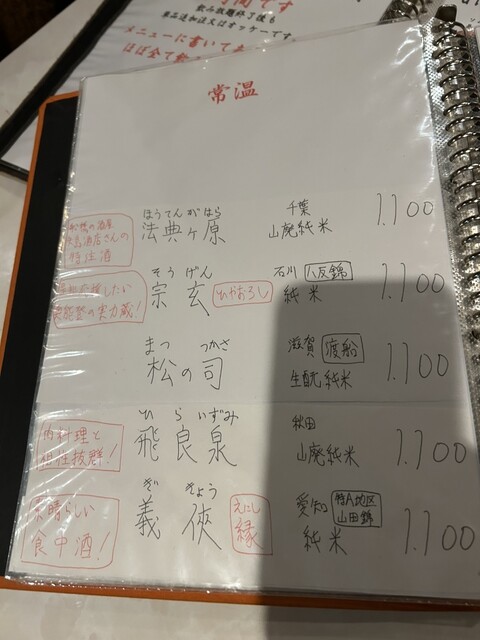 飲み放題終了後も
単品追加注文はオッケーです。
メニューに書いてま
ほぼ全て
常温
船橋の酒屋
酒店さんの
特注酒
ほうてんがはら
法典ヶ原
千葉
山廃純米
1.100
応援したい
奥能登の実力蔵!
そうげん
宗玄
ひやおろし
石川
八反錦
純米
1.100
まつ つかさ
松の司
滋賀
渡船
生酛純米
1.100
肉料理と
相性抜群!
ひらいずみ
飛良泉
秋田
山廃純米
1.100
素晴らしい
食中酒!
ぎ きょう
義侠
えにし
縁
愛知
特A地区
山田錦
純米
1.100